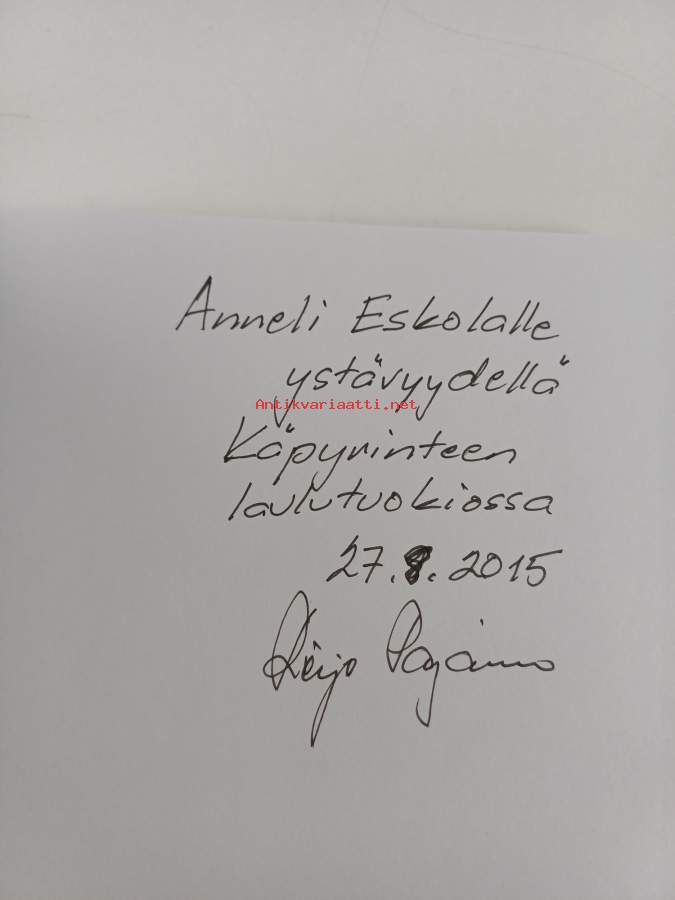 Anneli Eskolalle
ystävyydellä
Antikvariaatti.net
Käpyrinteen
laulutuokiossa
27.8.2015
Reijo Pajamo